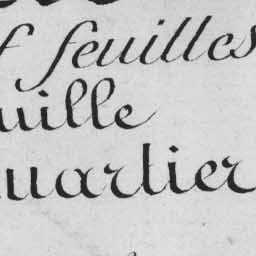 f feuilles
uille
uartier